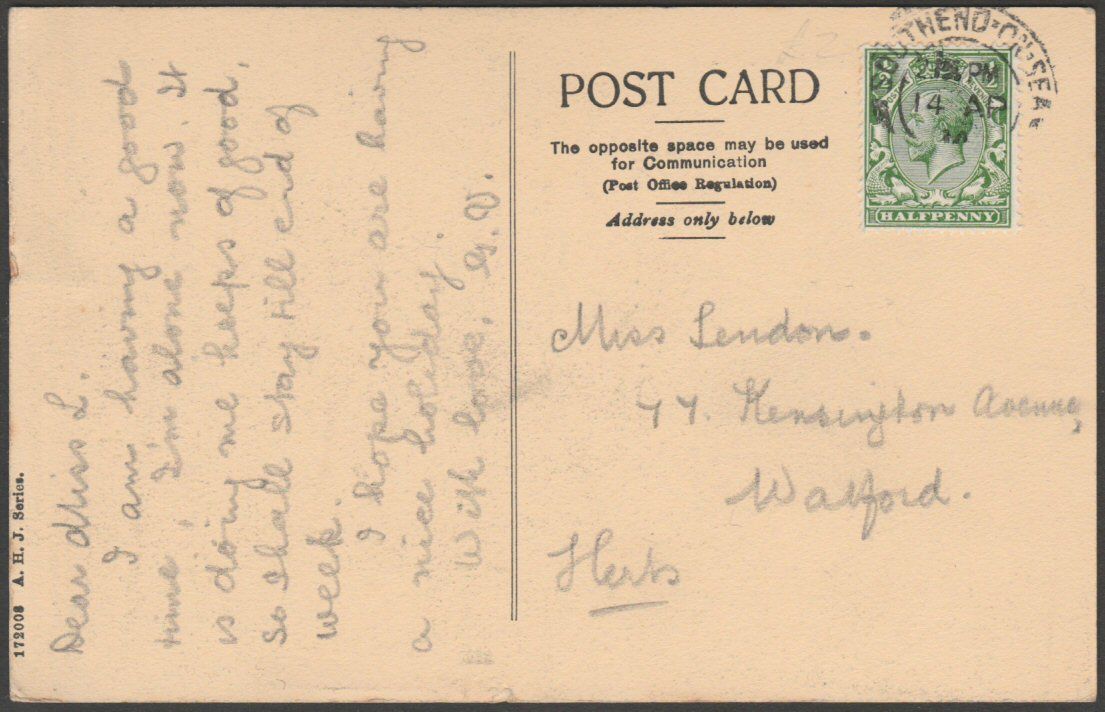 Dear Miss L.
I am having a good
time, I'm alone now. It
is doing me heeps of good,
so shall stay till end of
week.
I hope you are having
a nice holiday.
With love. G. V.
172008 A. H. J. Series.
POST CARD
The opposite space may be used
for Communication
(Post Office Regulation)
Address only below
SOUTHEND-ON-SEA
PM
14 AP
HALFPENNY
Miss Lendon.
77. Kensington Avenue,
Watford.
Herts